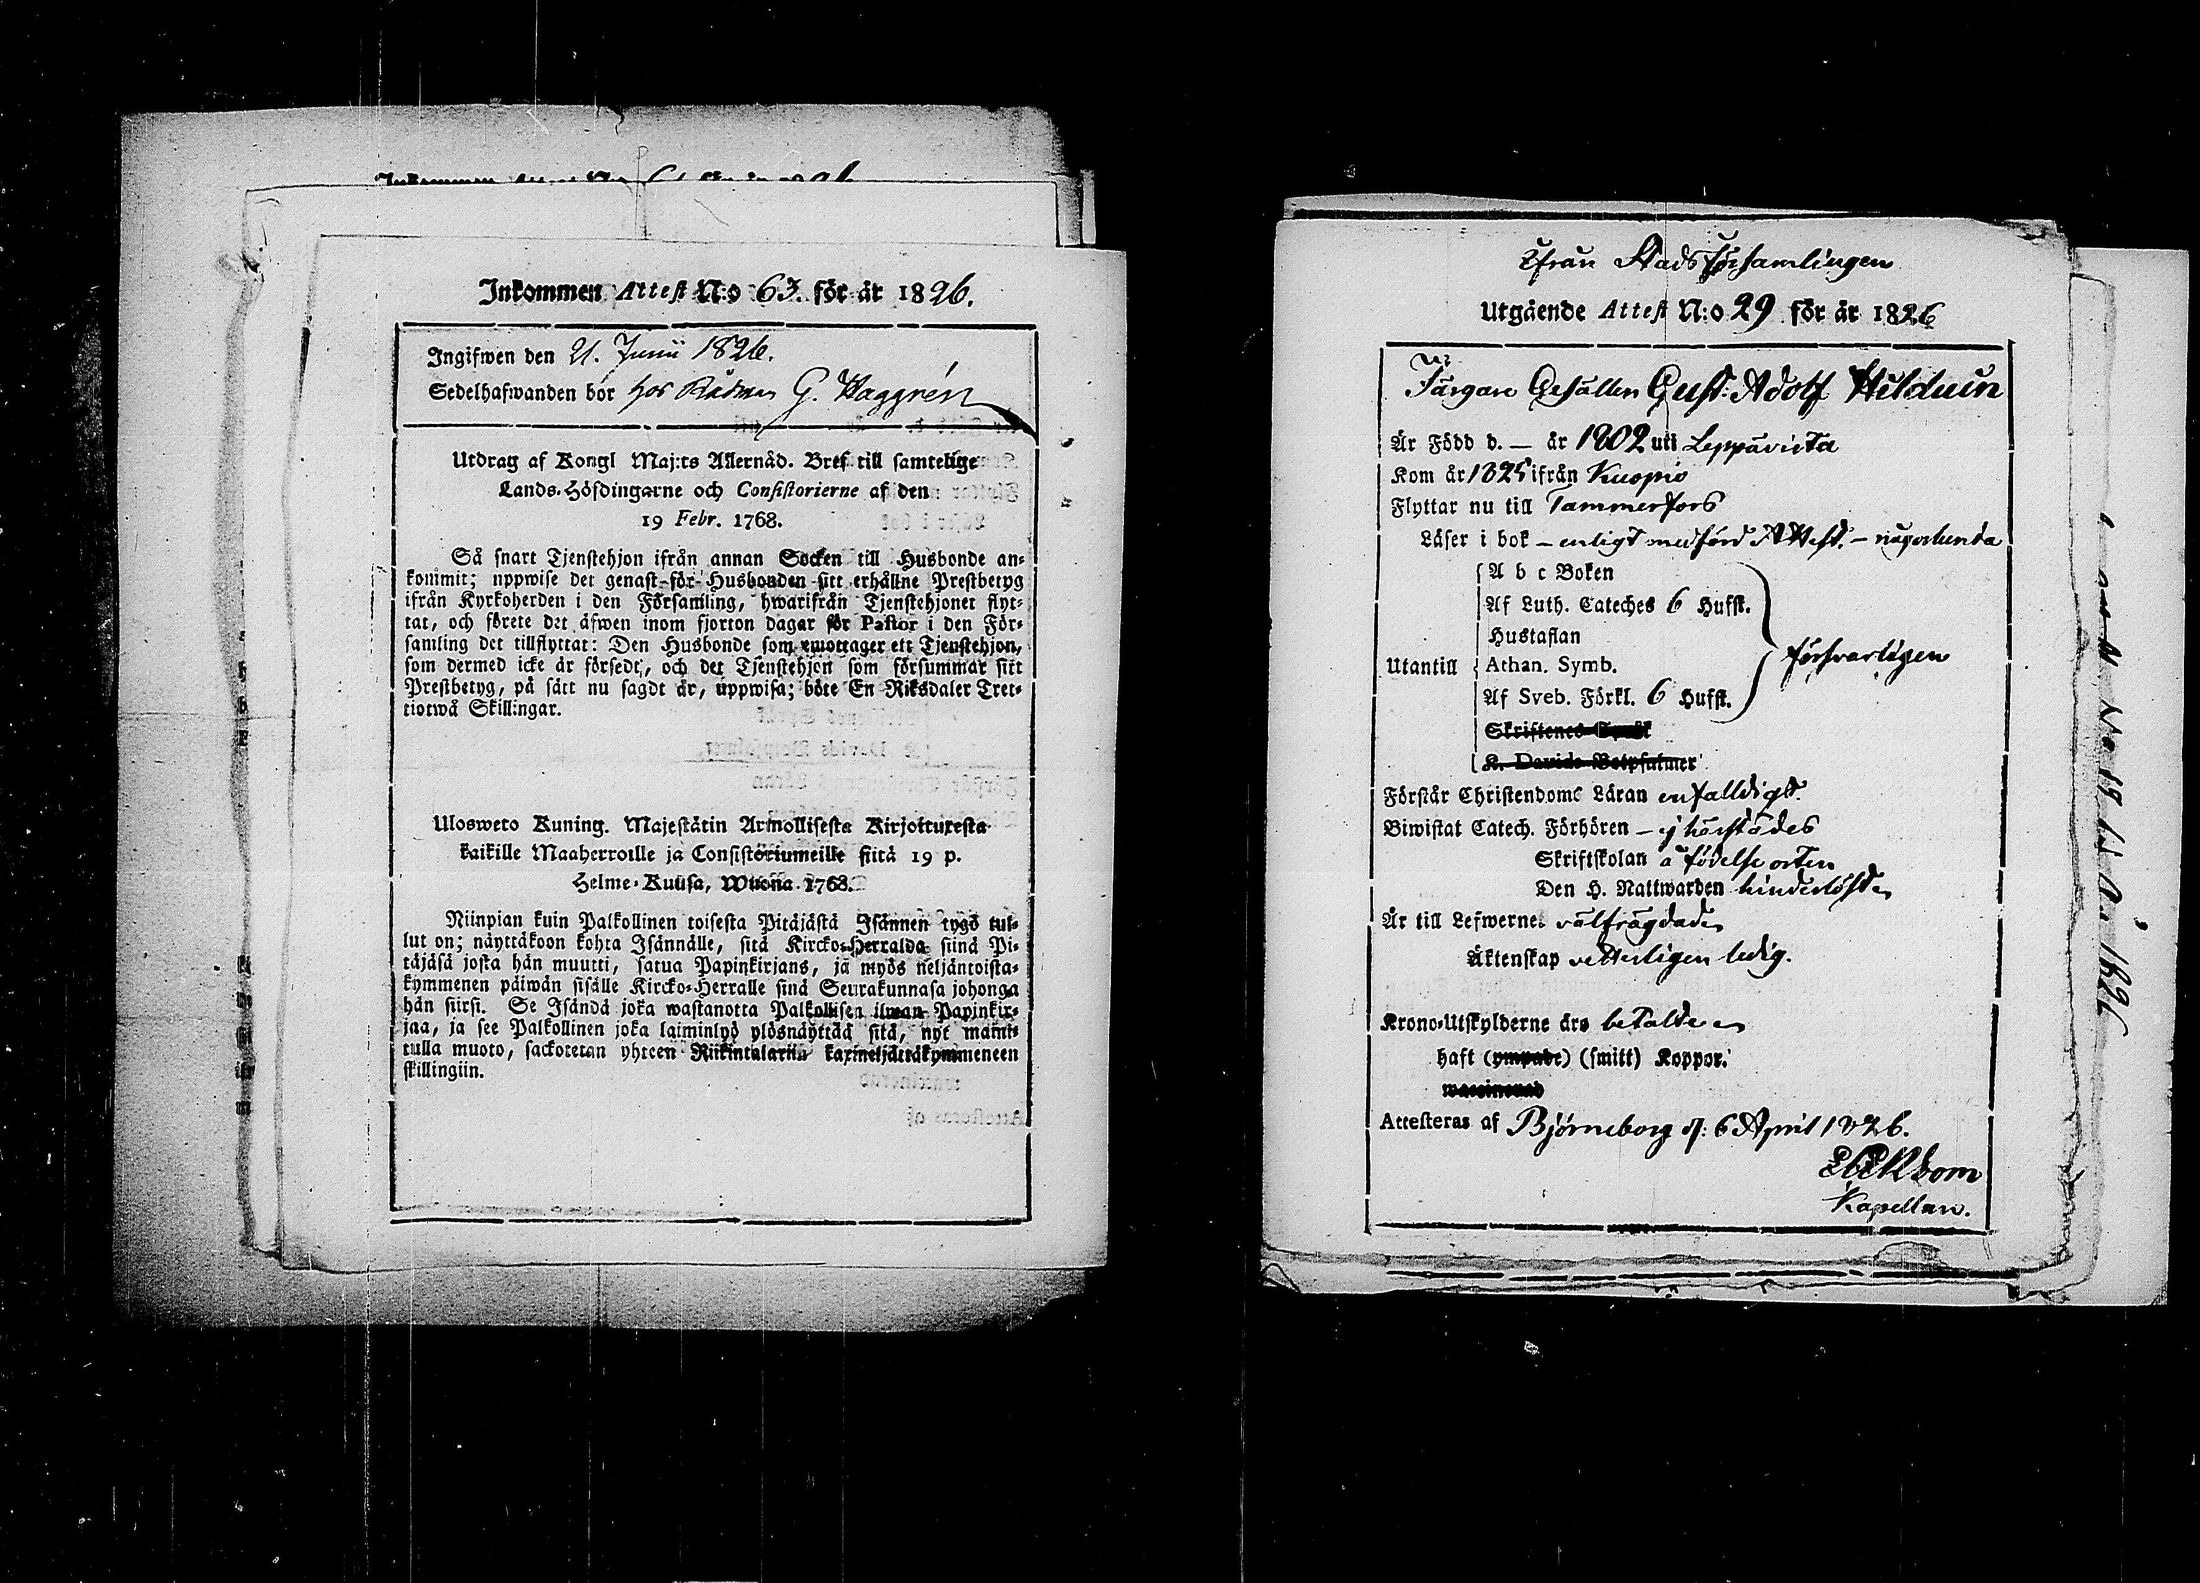 Inkommen Attest N:o 63. för år 1826.
Ingifwen den 21. Junii 1826.
Sedelhafwanden bor hos Rådman G. Haggrén
Utdrag af Kongl Maj:ts Allernåd. Bref till samtelige
Lands-Höfdingarne och Consistorierne af den
19 Febr. 1768.
Så snart Tjenstehjon ifrån annan Socken till Husbonde an-
kommit; uppwise det genast för Husbonden sitt erhållne Prestbetyg
ifrån Kyrkoherden i den Församling, hwarifrån Tjenstehjonet flyt-
tat, och förete det äfwen inom fjorton dagar för Pastor i den För-
samling det tillflyttat: Den Husbonde som emottager ett Tjenstehjon,
som dermed icke är försedt, och det Tjenstehjon som försummar sitt
Prestbetyg, på sätt nu sagdt är, uppwisa; böte En Riksdaler Tret-
tiotwå Skillingar.
Ulosweto Kuning. Majestätin Armollisesta Kirjoituxesta
kaikille Maaherroille ja Consistoriumeille siitä 19 p.
Helme-Kuusa, Wuona 1768.
Niinpian kuin Palkollinen toisesta Pitäjästä Isännen tygö tul-
lut on; näyttäkoon kohta Isännälle, sitä Kircko-Herralda siinä Pi-
täjäsä josta hän muutti, satua Papinkirjans, ja myös neljäntoista-
kymmenen päiwän sisälle Kircko-Herralle siinä Seurakunnasa johonga
hän siirsi. Se Isändä joka wastanotta Palkollisen ilman Papinkir-
jaa, ja see Palkollinen joka laiminlyö ylösnäyttää sitä, nyt mainit-
tulla muoto, sackotetan yhteen Riikintalariin kaxineljättäkymmeneen
skillingiin.
Ifrån Stads Församlingen
Utgående Attest N:o 29 för år 1826
Färgare Gesällen Gust: Adolf
År Född d. — år 1802 uti Leppävirta
Kom år 1825 ifrån Kuopio
Flyttar nu till Tammerfors
Läser i bok – enligt medförd Attest. – någorlunda
A b c Boken
Af Luth. Cateches 6 Hufst.
Hustaflan
Utantill Athan. Symb. försvarligen
Af Sveb. Förkl. 6 Hufst.
Skriftenes Språk
K. Davids Botpsalmer
Förstår Christendoms Läran enfalldigt.
Biwistat Catech. Förhören – ej härstädes
Skriftskolan å födelse orten
Den H. Nattwarden hinderlöst
År till Lefwernet välfrägdad
Äktenskap vetterligen ledig.
Krono-Utskylderne äro betalte
haft (ympade) (smitt) Koppor.
waccinerad
Attesteras af Björneborg d: 6 April 1826.
Kapellan.